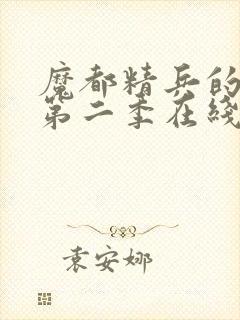 魔都精兵的
第二季在线
袁安娜